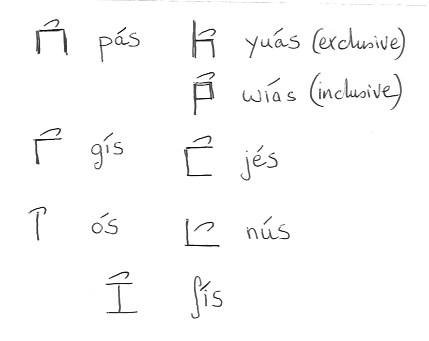 pás yuás (exclusive)
wiás (inclusive)
gís jés
ós nús
ʃís